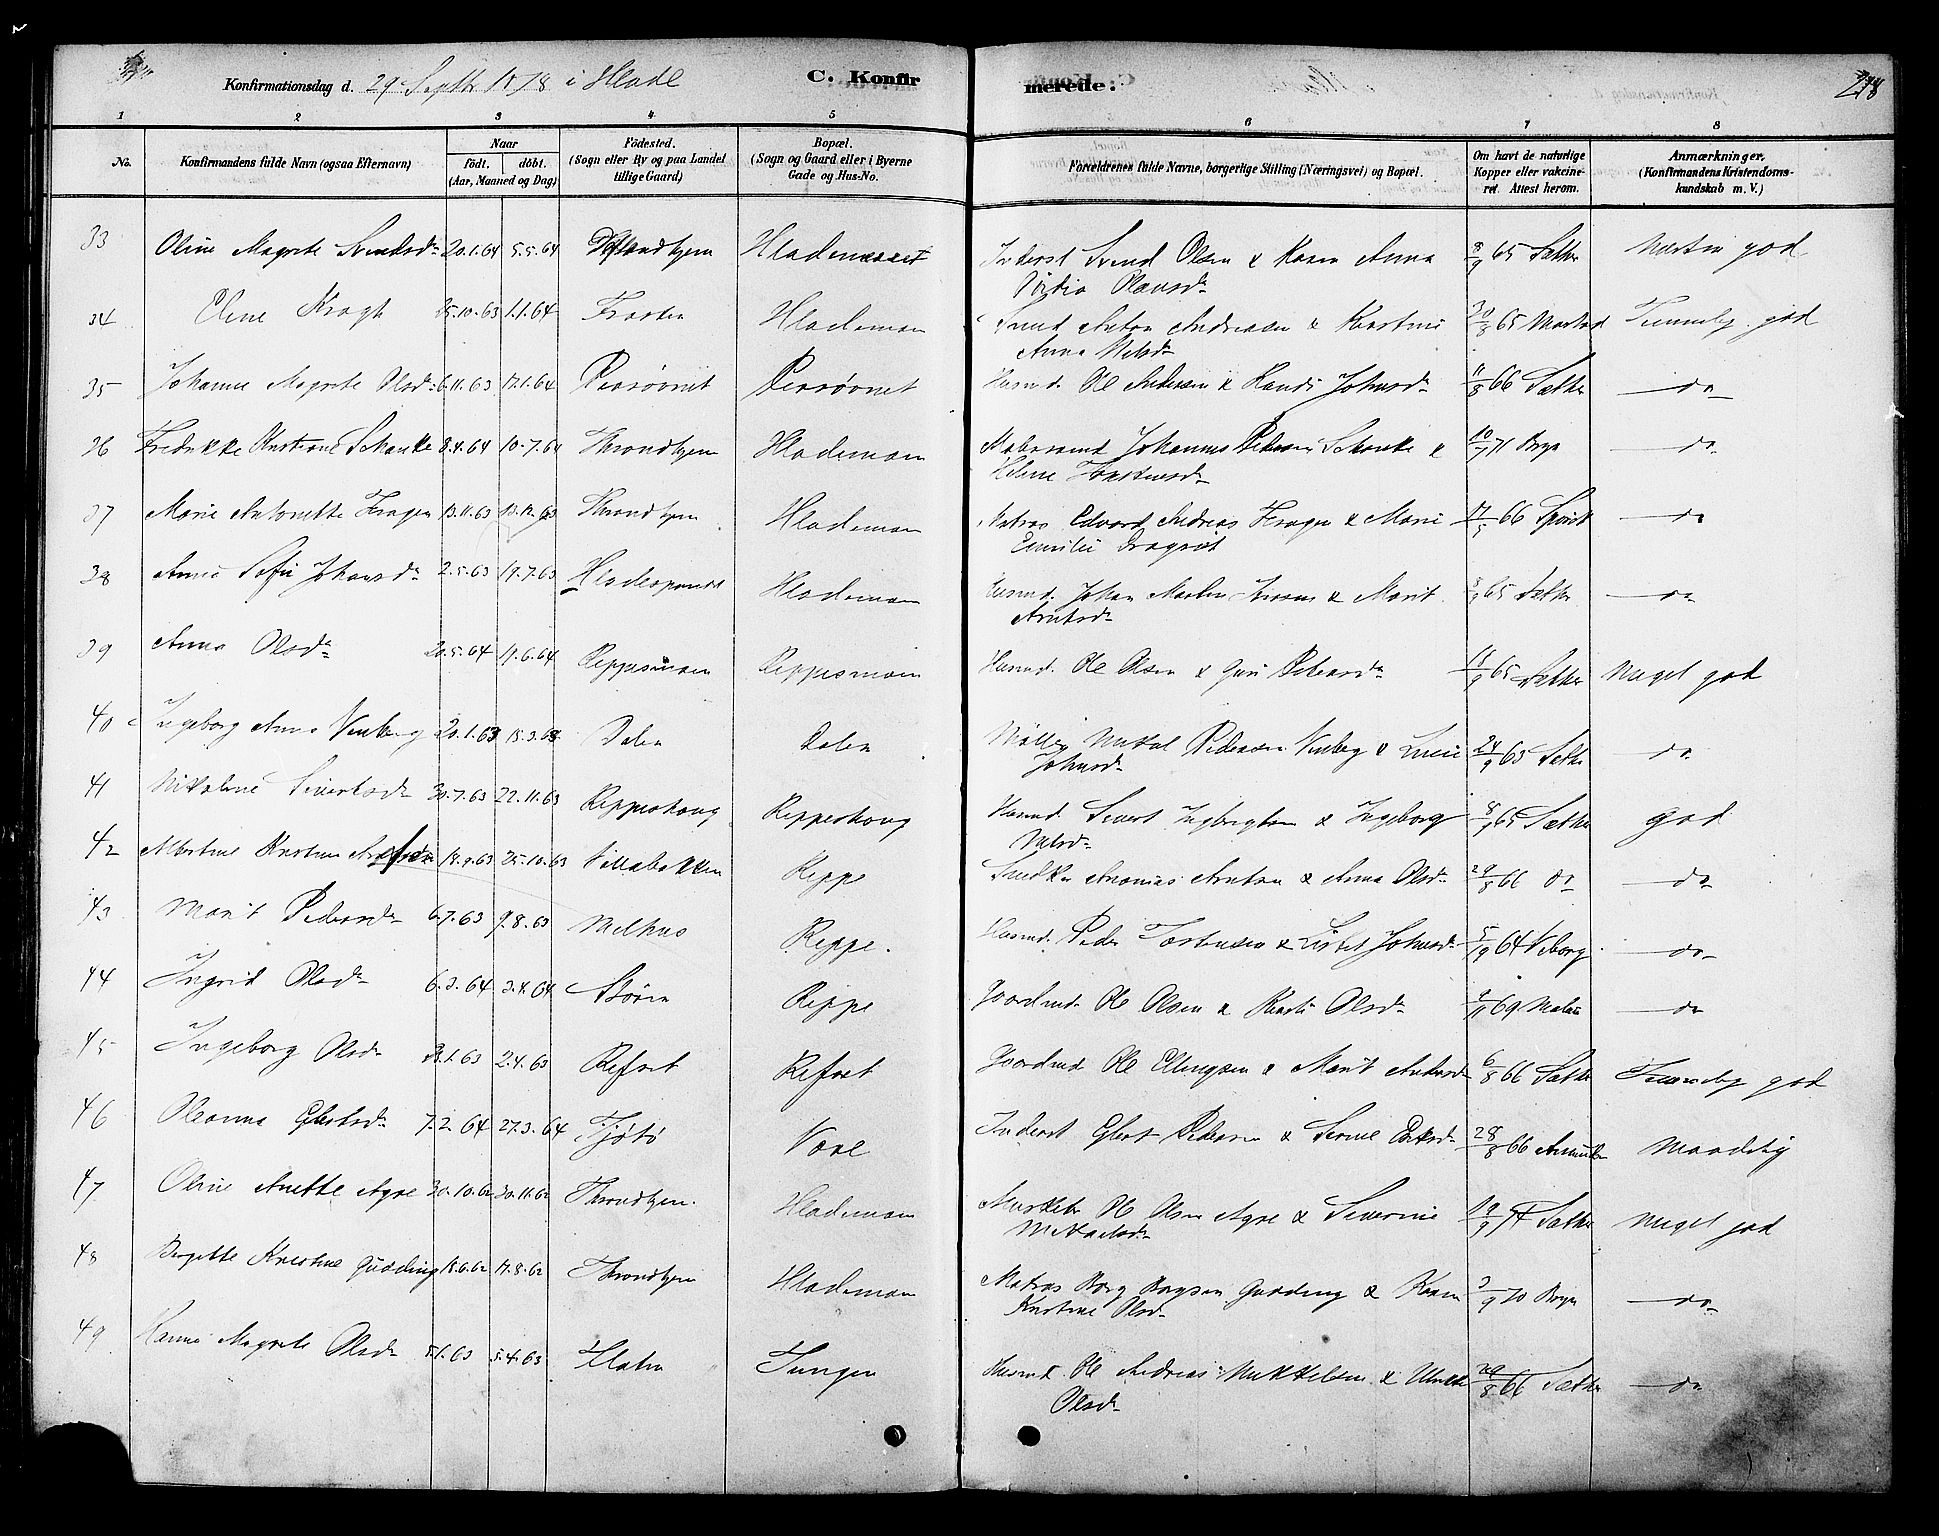 Konfirmationsdag d. 29de Septbr 1878 i Hlade C. Konfirmerede: 218
1 2 3 4 5 6 7 8
No. Konfirmandens fulde Navn (ogsaa Efternavn) Naar født. døbt. (Aar, Maaned og Dag) Fødested. (Sogn eller By og paa Landet tillige Gaard) Bopæl. (Sogn og Gaard eller i Byerne Gade og Hus-No. Forældrenes fulde Navne, borgerlige Stilling (Næringsvei) og Bopæl. Om havt de naturlige Kopper eller vakcineret. Attest herom. Anmærkninger. (Konfirmandens Kristendomskundskab m. V.)
33 Oline Magrete Svendsdr 20.1.64 5.5.64 Throndhjem Hlademoen Inderst Svend Olsen & Karen Anna
Olausdr 8/9 65 Sæther Næsten god
34 Eline Kragh 25.10.63 1.1.64 Frosten Hlademoen Smed Anton Andreasen & Kerstine
Anna Nilsdr 30/8 65 Temmelig god
35 Johanne Magrete Olsdr 6.11.63 17.1.64 Persøvnet Persøvnet Husmd. Ole Andersen & Randi Johnsdr 11/8 66 Sæther do
36 Fredrikke Kristine Schanke 8.4.64 10.7.64 Throndhjem Hlademoen Johannes Pedersen Schanke &
Helene Torstensdr 10/7 71 Bryn do
37 Marie Antonette Krogen 13.11.63 13.12.63 Throndhjem Hlademoen Matros Edvard Andreas Krogen & Marie
Emilie 17/5 66 do
38 Anne Sofie Johansdr 2.5.63 19.7.63 Hlademoen Husmd. Johan Martin Jensen & Marit
Arntsdr 65 Sæther do
39 Anna Olsdr 20.5.64 19.6.64 Reppesmoen Reppesmoen Husmd. Ole Olsen & Guri Pedersdr 18/9 65 Sæther Meget god
40 Ingeborg Anna Vinberg 20.1.63 15.3.63 Dalen Dalen Møller Mikal Pedersen Vinberg & Lucie
Johnsdr 24/9 65 Sæther do
41 Nikoline Sivertsdr 30.7.63 22.11.63 Reppeshoug Reppeshoug Husmd. Sivert Ingbrigtsen & Ingeborg
Nilsdr 8/9 65 Sæther God
42 Martine Kristine 18.9.63 25.10.63 Villabakken Reppe Snedker Andreas Arntsen & Anna Olsdr 29/8 66 do do
43 Marit Pedersdr 6.7.63 9.8.63 Melhus Reppe. Husmd. Peder Torstensen & Lisbet Johnsdr 5/19 64 Viborg do
44 Ingrid Olsdr 6.3.64 3.4.64 Støren Reppe Gaardmd. Ole Olsen & Kirsti Olsdr 69 do
45 Ingeborg Olsdr 31.1.63 2.4.63 Refset Refset Gaardmd. Ole Ellingsen & Marit Andersdr 6/8 66 Sæther Temmelig god
46 Oleanna Eliertsdr 7.2.64 27.3.64 Tjøtø Voxe Inderst Eliert Pedersen & Serine 28/8 66 Maadelig
47 Oline Anette Agre 30.10.62 30.11.62 Throndhjem. Hlademoen Musketer Ole Olsen Agre & Severine
Mikkelsdr 19/9 74 Sæther Meget god
48 Birgitte Kristine Gudding 15.6.62 17.8.62 Throndhjem Hlademoen Matros Borg Borgsen Gudding & Karen
Kristine Olsdr 3/9 70 Bryn do
49 Hanna Magrete Olsdr 5.1.63 5.4.63 Hlade Tungen Husmd. Ole Andreas Mikkelsen & Ulrikke
Olsdr 29/8 66 Sæther do